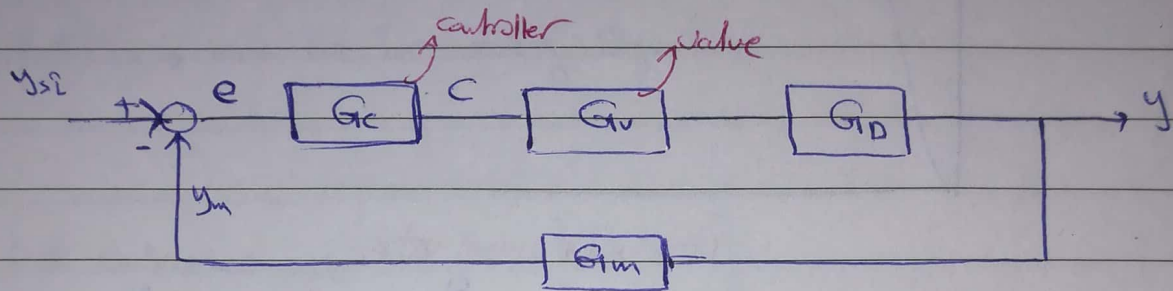 controller
valve
ysi
+
e
Gc
C
Gv
GD
y
-
ym
Gm